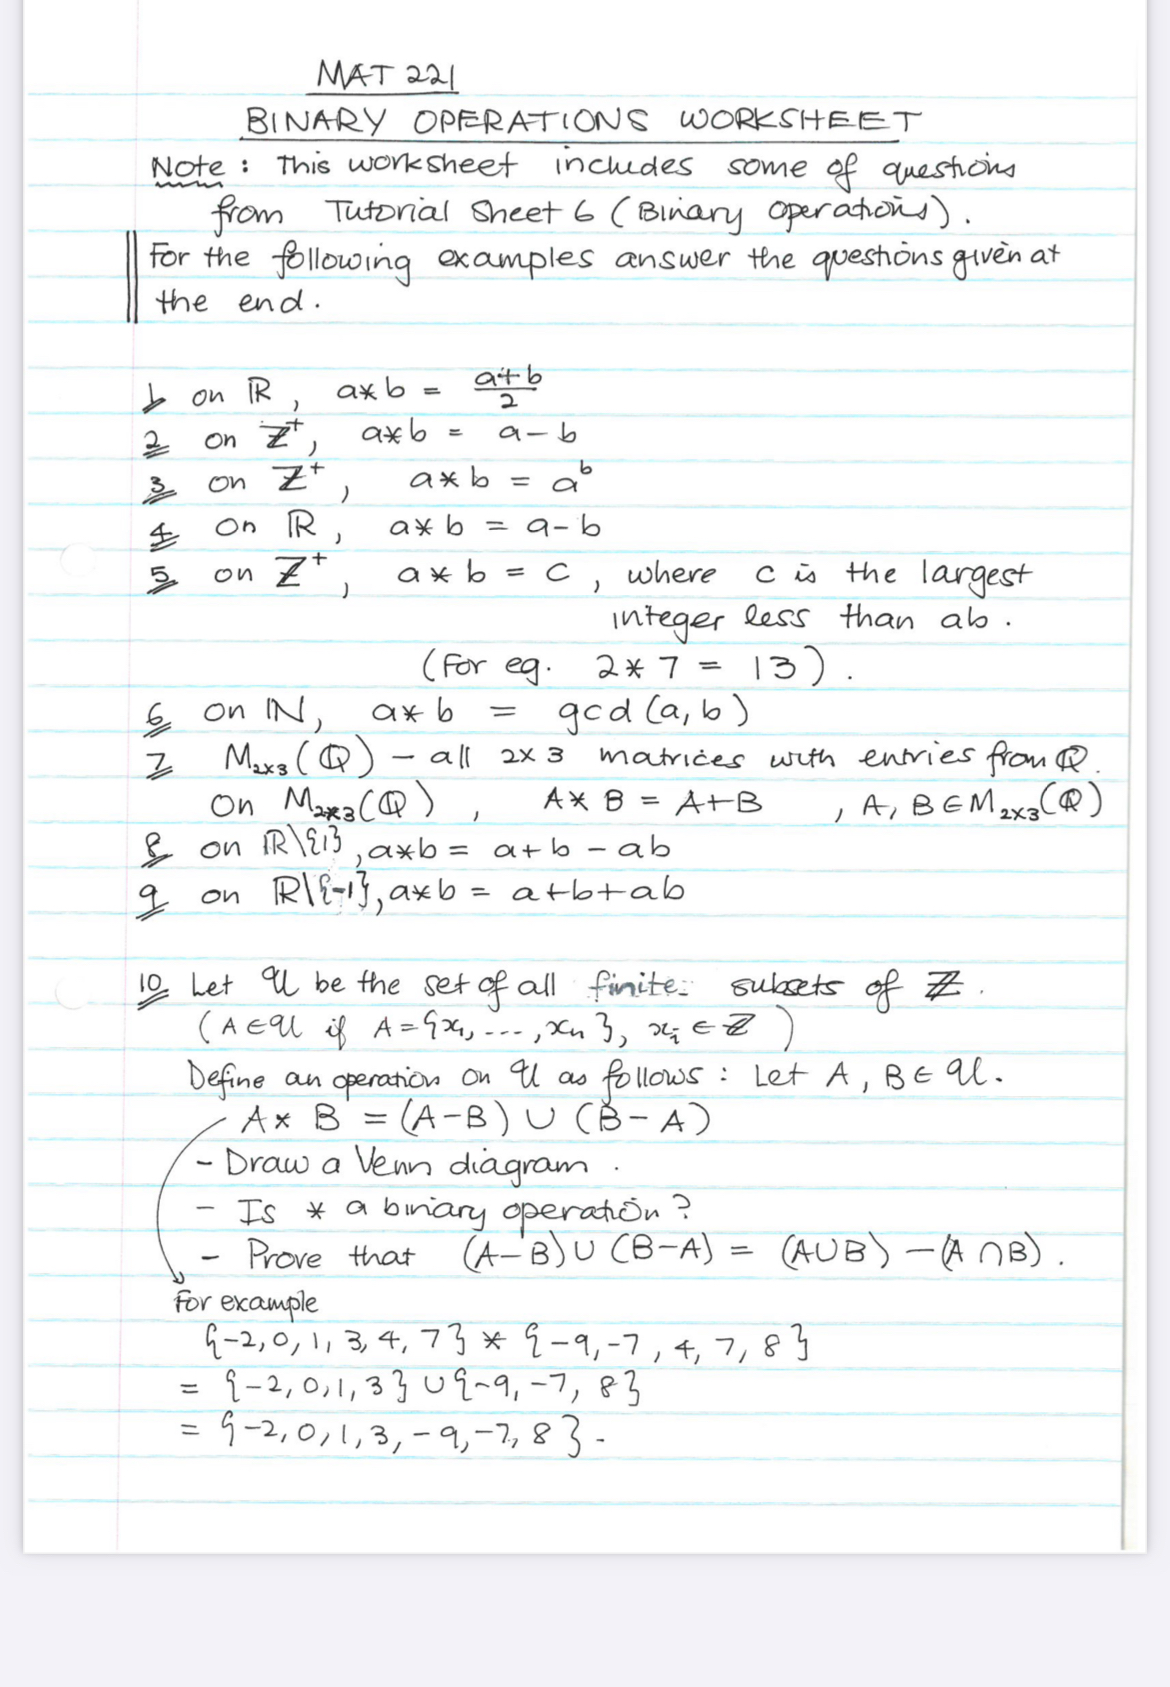 MAT 221
BINARY OPERATIONS WORKSHEET
Note : This worksheet includes some of questions
from Tutorial Sheet 6 (Binary operations).
For the following examples answer the questions given at
the end.
1 on ℝ, a * b = (a+b)/2
2 on ℤ⁺, a * b = a - b
3 on ℤ⁺, a * b = a^b
4 on ℝ, a * b = a - b
5 on ℤ⁺, a * b = c, where c is the largest
integer less than ab.
(for eg. 2 * 7 = 13).
6 on ℕ, a * b = gcd(a, b)
7 M₂ₓ₃(ℚ) - all 2x3 matrices with entries from ℚ.
On M₂ₓ₃(ℚ), A * B = A+B, A, B ∈ M₂ₓ₃(ℚ)
8 on ℝ\{1}, a*b = a+b-ab
9 on ℝ\{-1}, a*b = a+b+ab
10 Let 𝒰 be the set of all finite subsets of ℤ.
(A ∈ 𝒰 if A = {x₁, ---, xₙ}, xᵢ ∈ ℤ)
Define an operation on 𝒰 as follows : Let A, B ∈ 𝒰.
A * B = (A-B) ∪ (B-A)
- Draw a Venn diagram.
- Is * a binary operation?
- Prove that (A-B) ∪ (B-A) = (A∪B) - (A∩B).
For example
{-2, 0, 1, 3, 4, 7} * {-9, -7, 4, 7, 8}
= {-2, 0, 1, 3} ∪ {-9, -7, 8}
= {-2, 0, 1, 3, -9, -7, 8}.